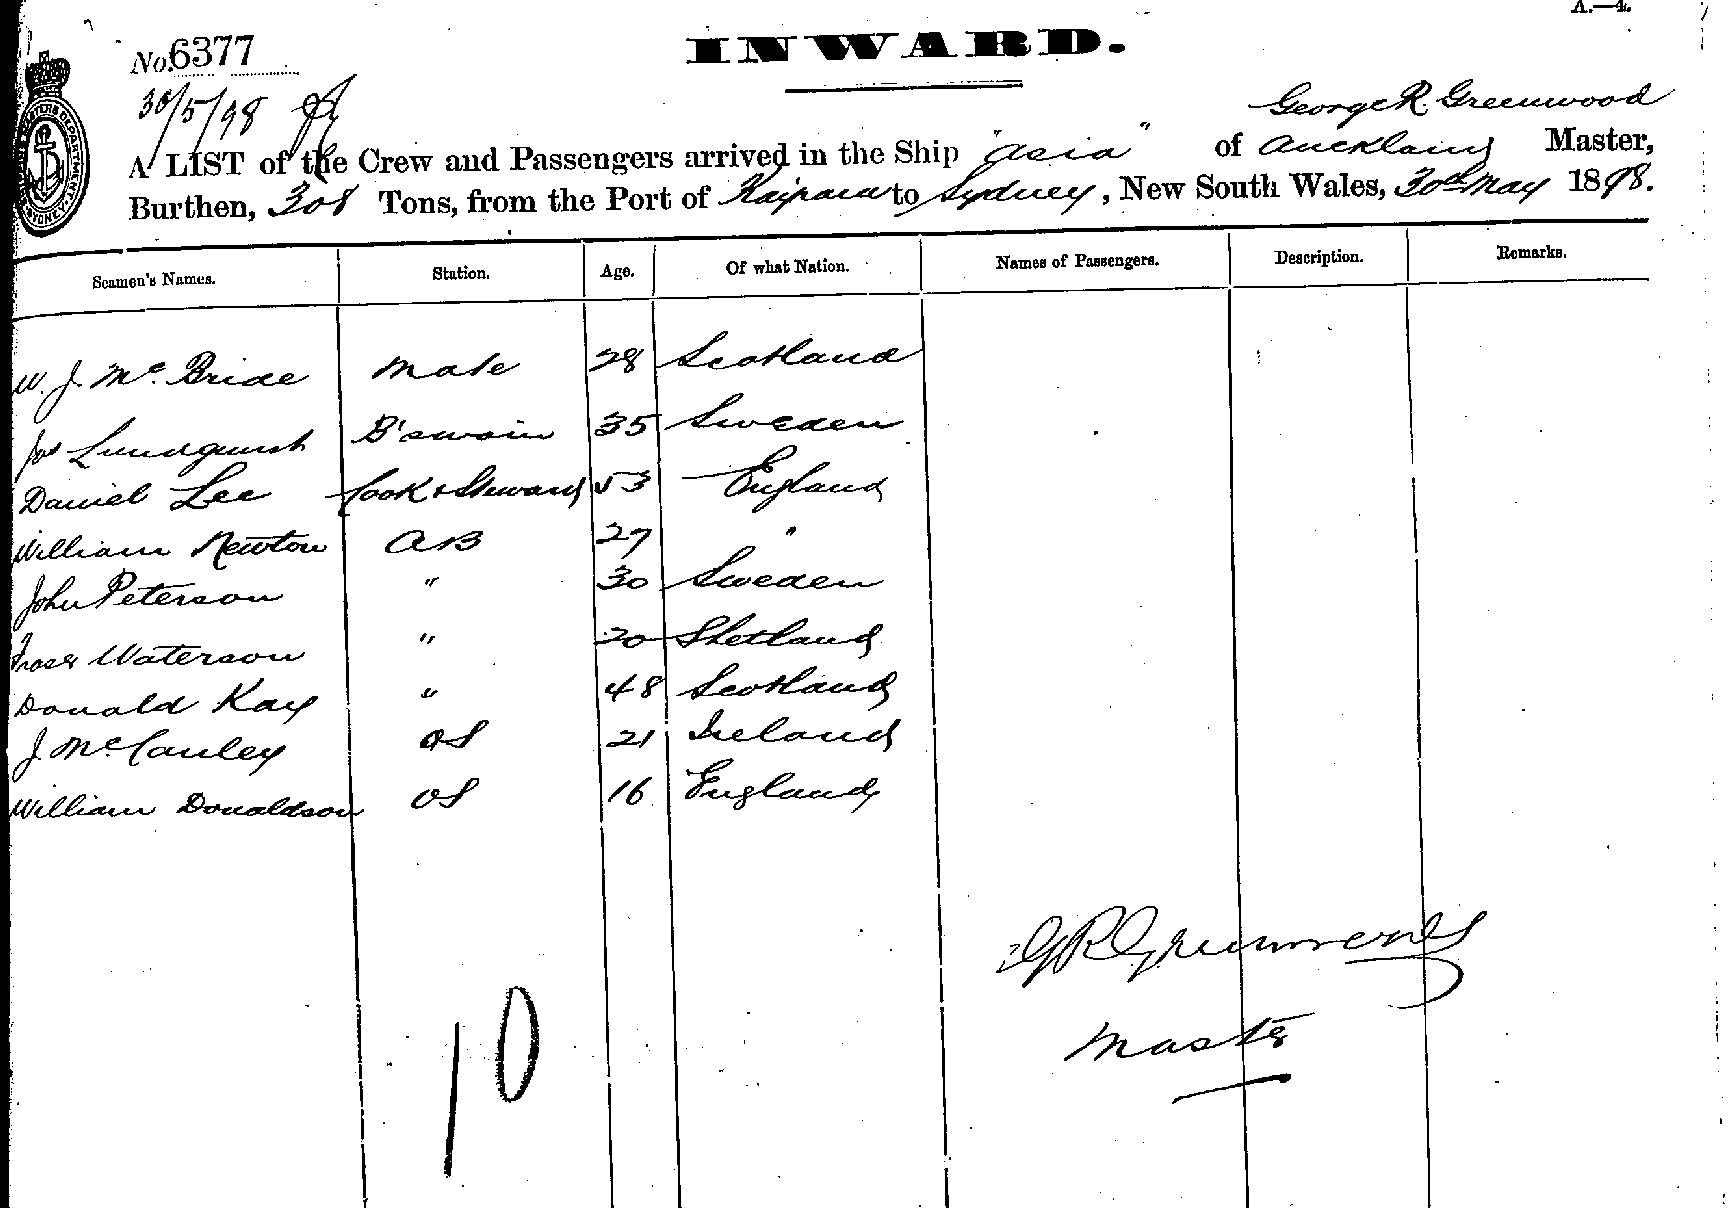 A.—4.
No. 6377
INWARD.
30/5/98
George R. Greenwood
A LIST of the Crew and Passengers arrived in the Ship "Asia" of Auckland Master,
Burthen, 308 Tons, from the Port of Kaipara to Sydney, New South Wales, 30th May 1898.
Seamen's Names. Station. Age. Of what Nation. Names of Passengers. Description. Remarks.
W. J. McBride Mate 28 Scotland
Jos Lundquist B'swain 35 Sweden
Daniel Lee Cook & Steward 53 England
William Newton AB 27 "
John Peterson " 30 Sweden
Fraser Waterson " 20 Shetland
Donald Kay " 48 Scotland
J. McCauley OS 21 Ireland
William Donaldson OS 16 England
G R Greenwood
Master
10